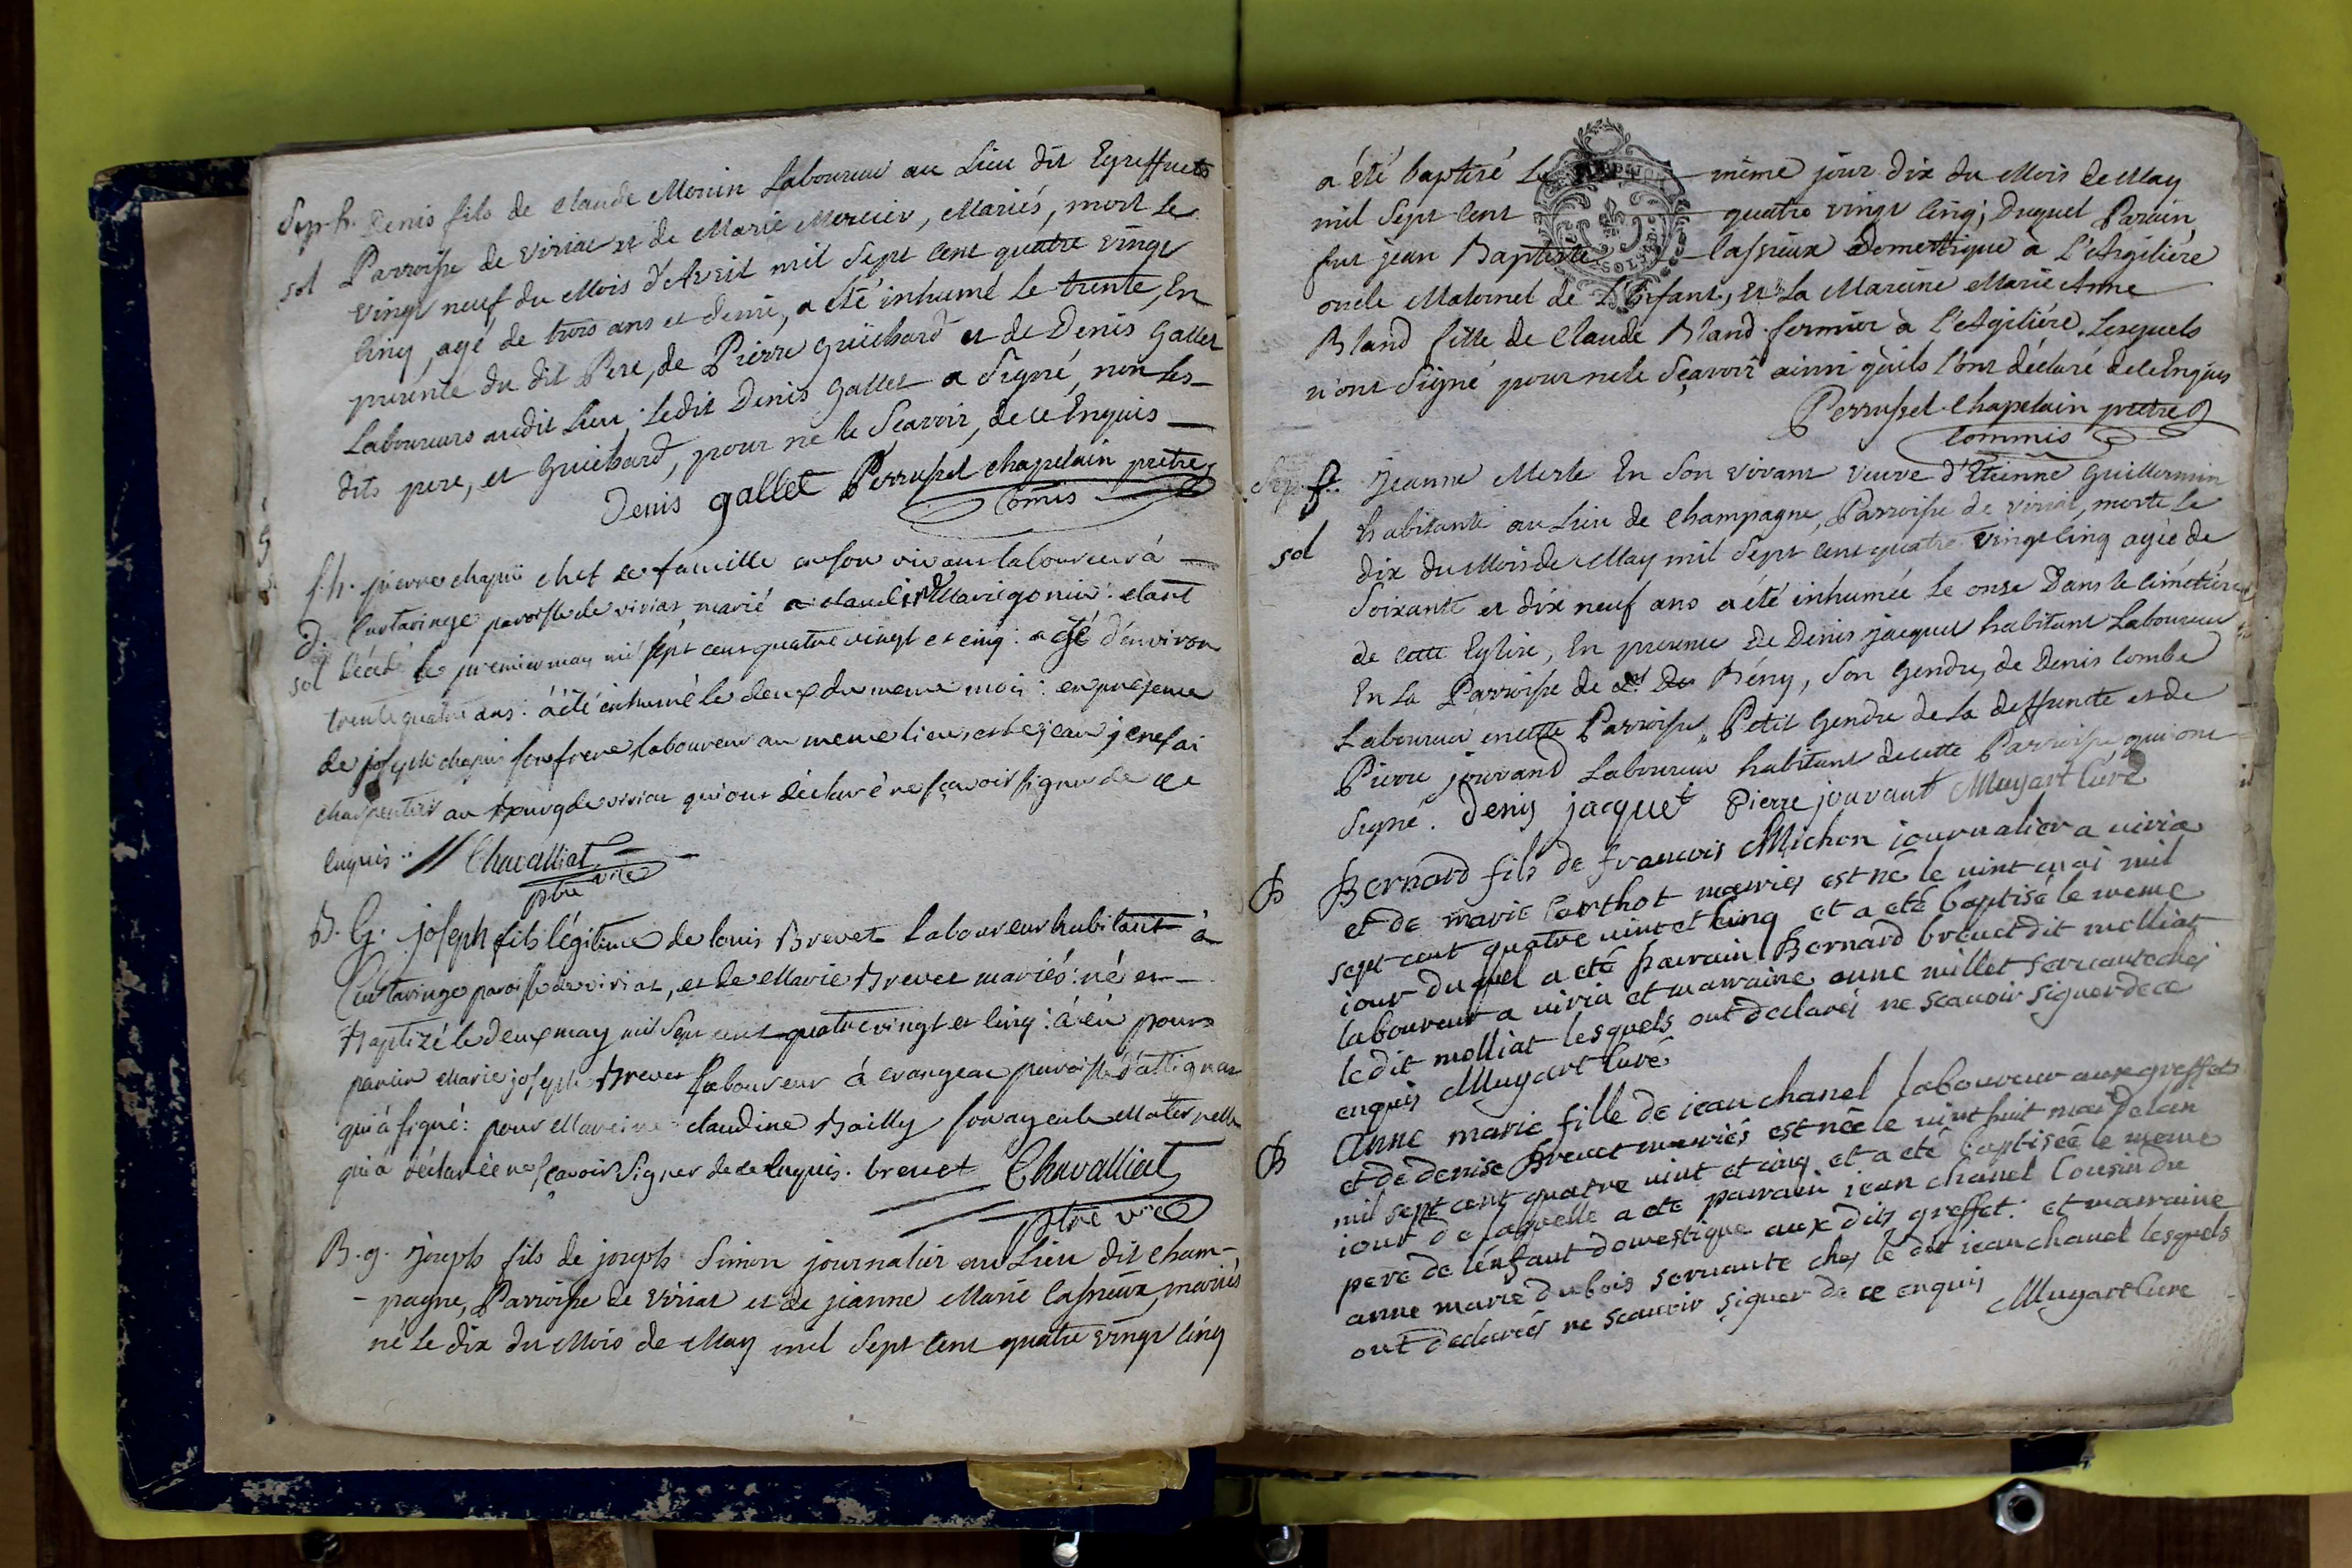 Sep. h. Denis fils de Claude Monin Laboureur au Lieu dit Egreffets
sol Parroisse de Viriat et de Marie Mercier, Mariés, mort le
vingt neuf du Mois d'Avril mil sept cent quatre vingt
cinq, agé de trois ans et demi, a été inhumé le trente, En
présence du dit Pere, de Pierre Guichard et de Denis Gallet
Laboureurs audit Lieu, Ledit Denis Gallet a Signé, non les-
dits pere, et Guichard, pour ne le Scavoir, de ce Enquis
Denis gallet Perrussel chapelain prêtre
Comis
s. h. pierre chapui chef de famille en son vivant laboureur à
D. Curtaringe paroisse de viriat marié a claudine Marie gonin: etant
sol décédé le premier may mil sept cent quatre vingt et cinq: agé d'environ
trente quatre ans: à été inhumé le deux du meme mois: en presence
de joseph chapui son frere laboureur au meme lieu, et de jean
charpentier au bourg de viriat qui ont déclaré ne sçavoir signer de ce
enquis.. // Chavalliat
ptre vre
B. G. joseph fils légitime de louis Brevet laboureur habitant à
Curtaringe paroisse de viriat, et de Marie Brevet mariés: né et
baptizé le deux may mil sept cent quatre vingt et cinq: à eu pour
parein Marie joseph Brevet laboureur à parroisse d'attignat
qui à signé: pour Mareine claudine Bailly son ayeule Maternelle
qui à déclarée ne sçavoir signer de ce enquis. brevet Chavalliat
ptre vre
B. g. Joseph fils de joseph Simon journalier au Lieu dit Cham-
pagne, Parroisse de Viriat et de jeanne Marie Lassieux mariés
né le dix du Mois de May mil sept cent quatre vingt cinq
a été baptisé Le même jour dix du Mois de May
mil Sept Cent quatre vingt cinq; Duquel Parain
fut jean Baptiste Lassieux Domestique à L'Argilière
oncle Maternel de L'Enfant, et La Mareine Marie Anne
Bland fille de Claude Bland fermier à L'Agilière. Lesquels
n'ont Signé pour ne le Sçavoir ainsi qu'ils l'ont déclaré de ce Enquis
Perrussel Chapelain prêtre
Commis
Sep. f. Jeanne Merle En Son vivant veuve d'Etienne Guillermin
habitante au Lieu de Champagne, Parroisse de viriat, morte Le
sol dix du Mois de May mil Sept Cent quatre vingt cinq agée de
Soixante et dix neuf ans a été inhumée Le onze Dans le Cimétière
de cette Eglise, En presence de Denis jacquet habitant Laboureur
En La Parroisse de Bény, Son Gendre, de Denis Combe
Laboureur en cette Parroisse, Petit Gendre de La deffuncte et de
Pierre jouvand Laboureur habitant de cette Parroisse qui ont
Signé. Denis jacquet Pierre jouvant Muyart Curé
B Bernard fils de francois Michon journalier a viria
et de marie Corthot mariés est né le vint mai mil
sept cent quatre vint et cinq et a eté baptisé le meme
iour duquel a eté parrain Bernard brevet dit molliat
laboureur a viria et marraine anne millet servante chez
le dit molliat lesquels ont declarés ne scavoir signer de ce
enquis Muyart Curé
B Anne marie fille de iean chanel laboureur aux greffets
et de denise Brevet mariés est née le vint huit mai de lan
mil sept cent quatre vint et cinq et a eté baptisée le meme
iour de laquelle a eté parrain iean chanel Cousin du
pere de lenfant domestique aux dits greffet: et marraine
anne marie dubois servante chez le dit iean chanel lesquels
ont declarés ne scavoir signer de ce enquis Muyart Cure